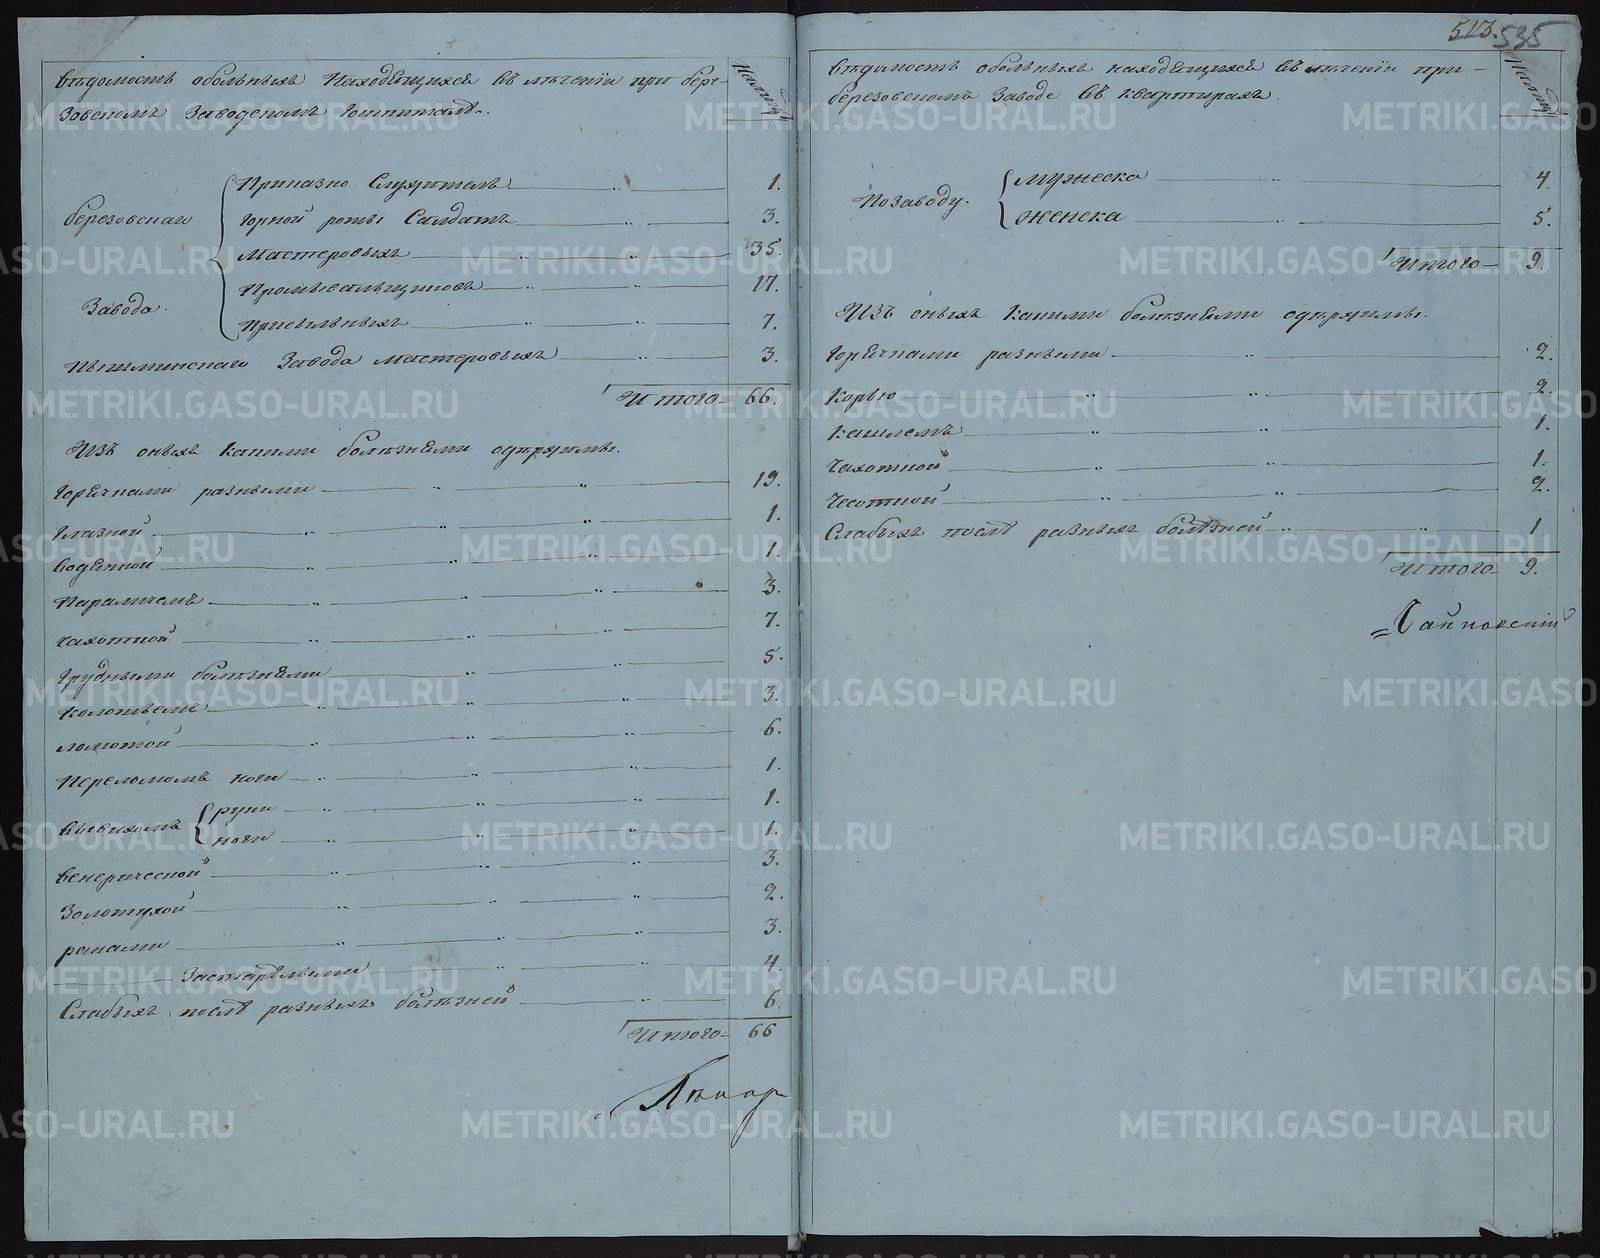 Вѣдомость обольныхъ находящихся въ лѣченіи при бере-
зовскомъ Заводскомъ Гошпиталѣ.
На лицо
Березовскаго
Завода
Приказно Служитель 1.
Горной роты Салдатъ 3.
Мастеровыхъ 35.
Промывальщиковъ 17.
Присыльныхъ 7.
Пышминскаго Завода мастеровыхъ 3.
Итого 66.
Изъ оныхъ какими болѣзнями одержимы.
Горячками разными 19.
Глазной 1.
Водяной 1.
Параличемъ 3.
Чахоткой 7.
Грудными болѣзнями 5.
Колотьемъ 3.
Ломотой 6.
Переломомъ ноги 1.
Вывихомъ
руки 1.
ноги 1.
Венерической 3.
Золотухой 2.
ранами 3.
Застарѣлыми 4.
Слабыхъ послѣ разныхъ болѣзней 6.
Итого 66
Лекарь
513. 535
Вѣдомость обольныхъ находящихся въ лѣченіи при
березовскомъ Заводе въ квартирахъ.
На лицо
По заводу.
мужеска 4.
женска 5.
Итого 9.
Изъ оныхъ какими болѣзнями одержимы.
Горячками разными 2.
Корью 2.
Кашлемъ 1.
Чахоткой 1.
Чесоткой 2.
Слабыхъ послѣ разныхъ болѣзней 1
Итого 9.
METRIKI.GASO-URAL.RU